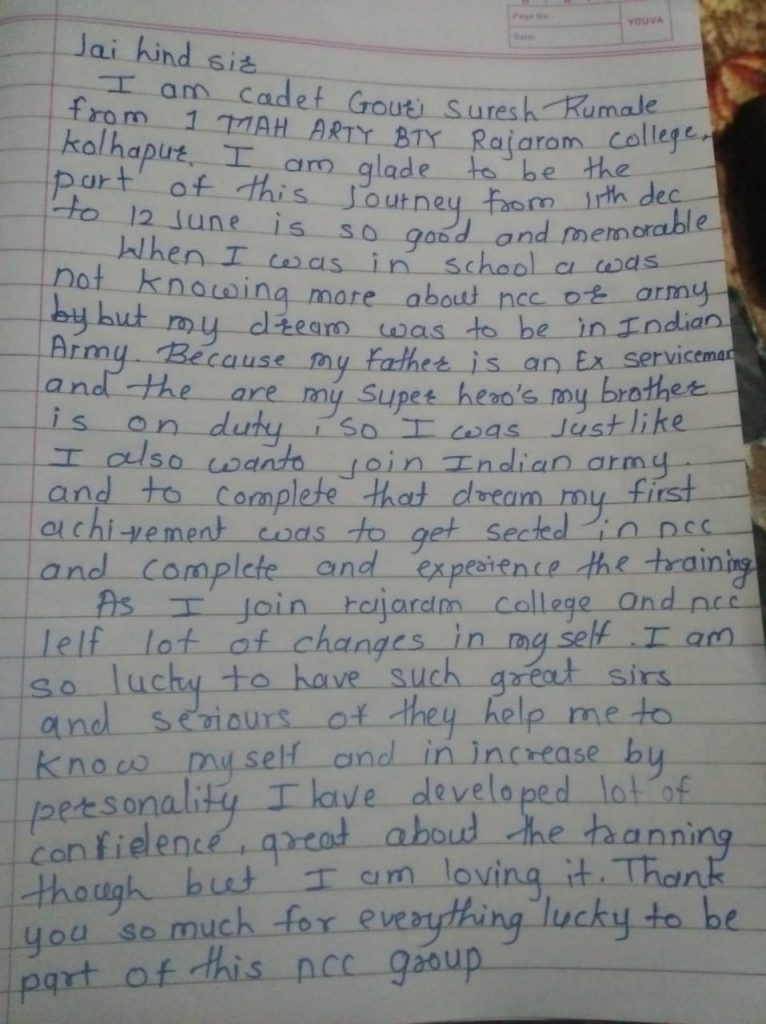 Page No.:
Date:
YOUVA
Jai hind sir
I am cadet Gouri Suresh Rumale
from 1 MAH ARTY BTY Rajaram college,
kolhapur. I am glade to be the
part of this journey from 11th dec
to 12 June is so good and memorable
When I was in school a was
not knowing more about ncc or army
by but my dream was to be in Indian
Army. Because my father is an Ex serviceman
and the are my super hero's my brother
is on duty, so I was Just like
I also wanto join Indian army.
and to complete that dream my first
achivement was to get sected in ncc
and complete and experience the training
As I join rajaram college and ncc
lelf lot of changes in my self. I am
so lucky to have such great sirs
and seriours of they help me to
know my self and in increase by
personality I have developed lot of
confidence, great about the tranning
though but I am loving it. Thank
you so much for everything lucky to be
part of this ncc group